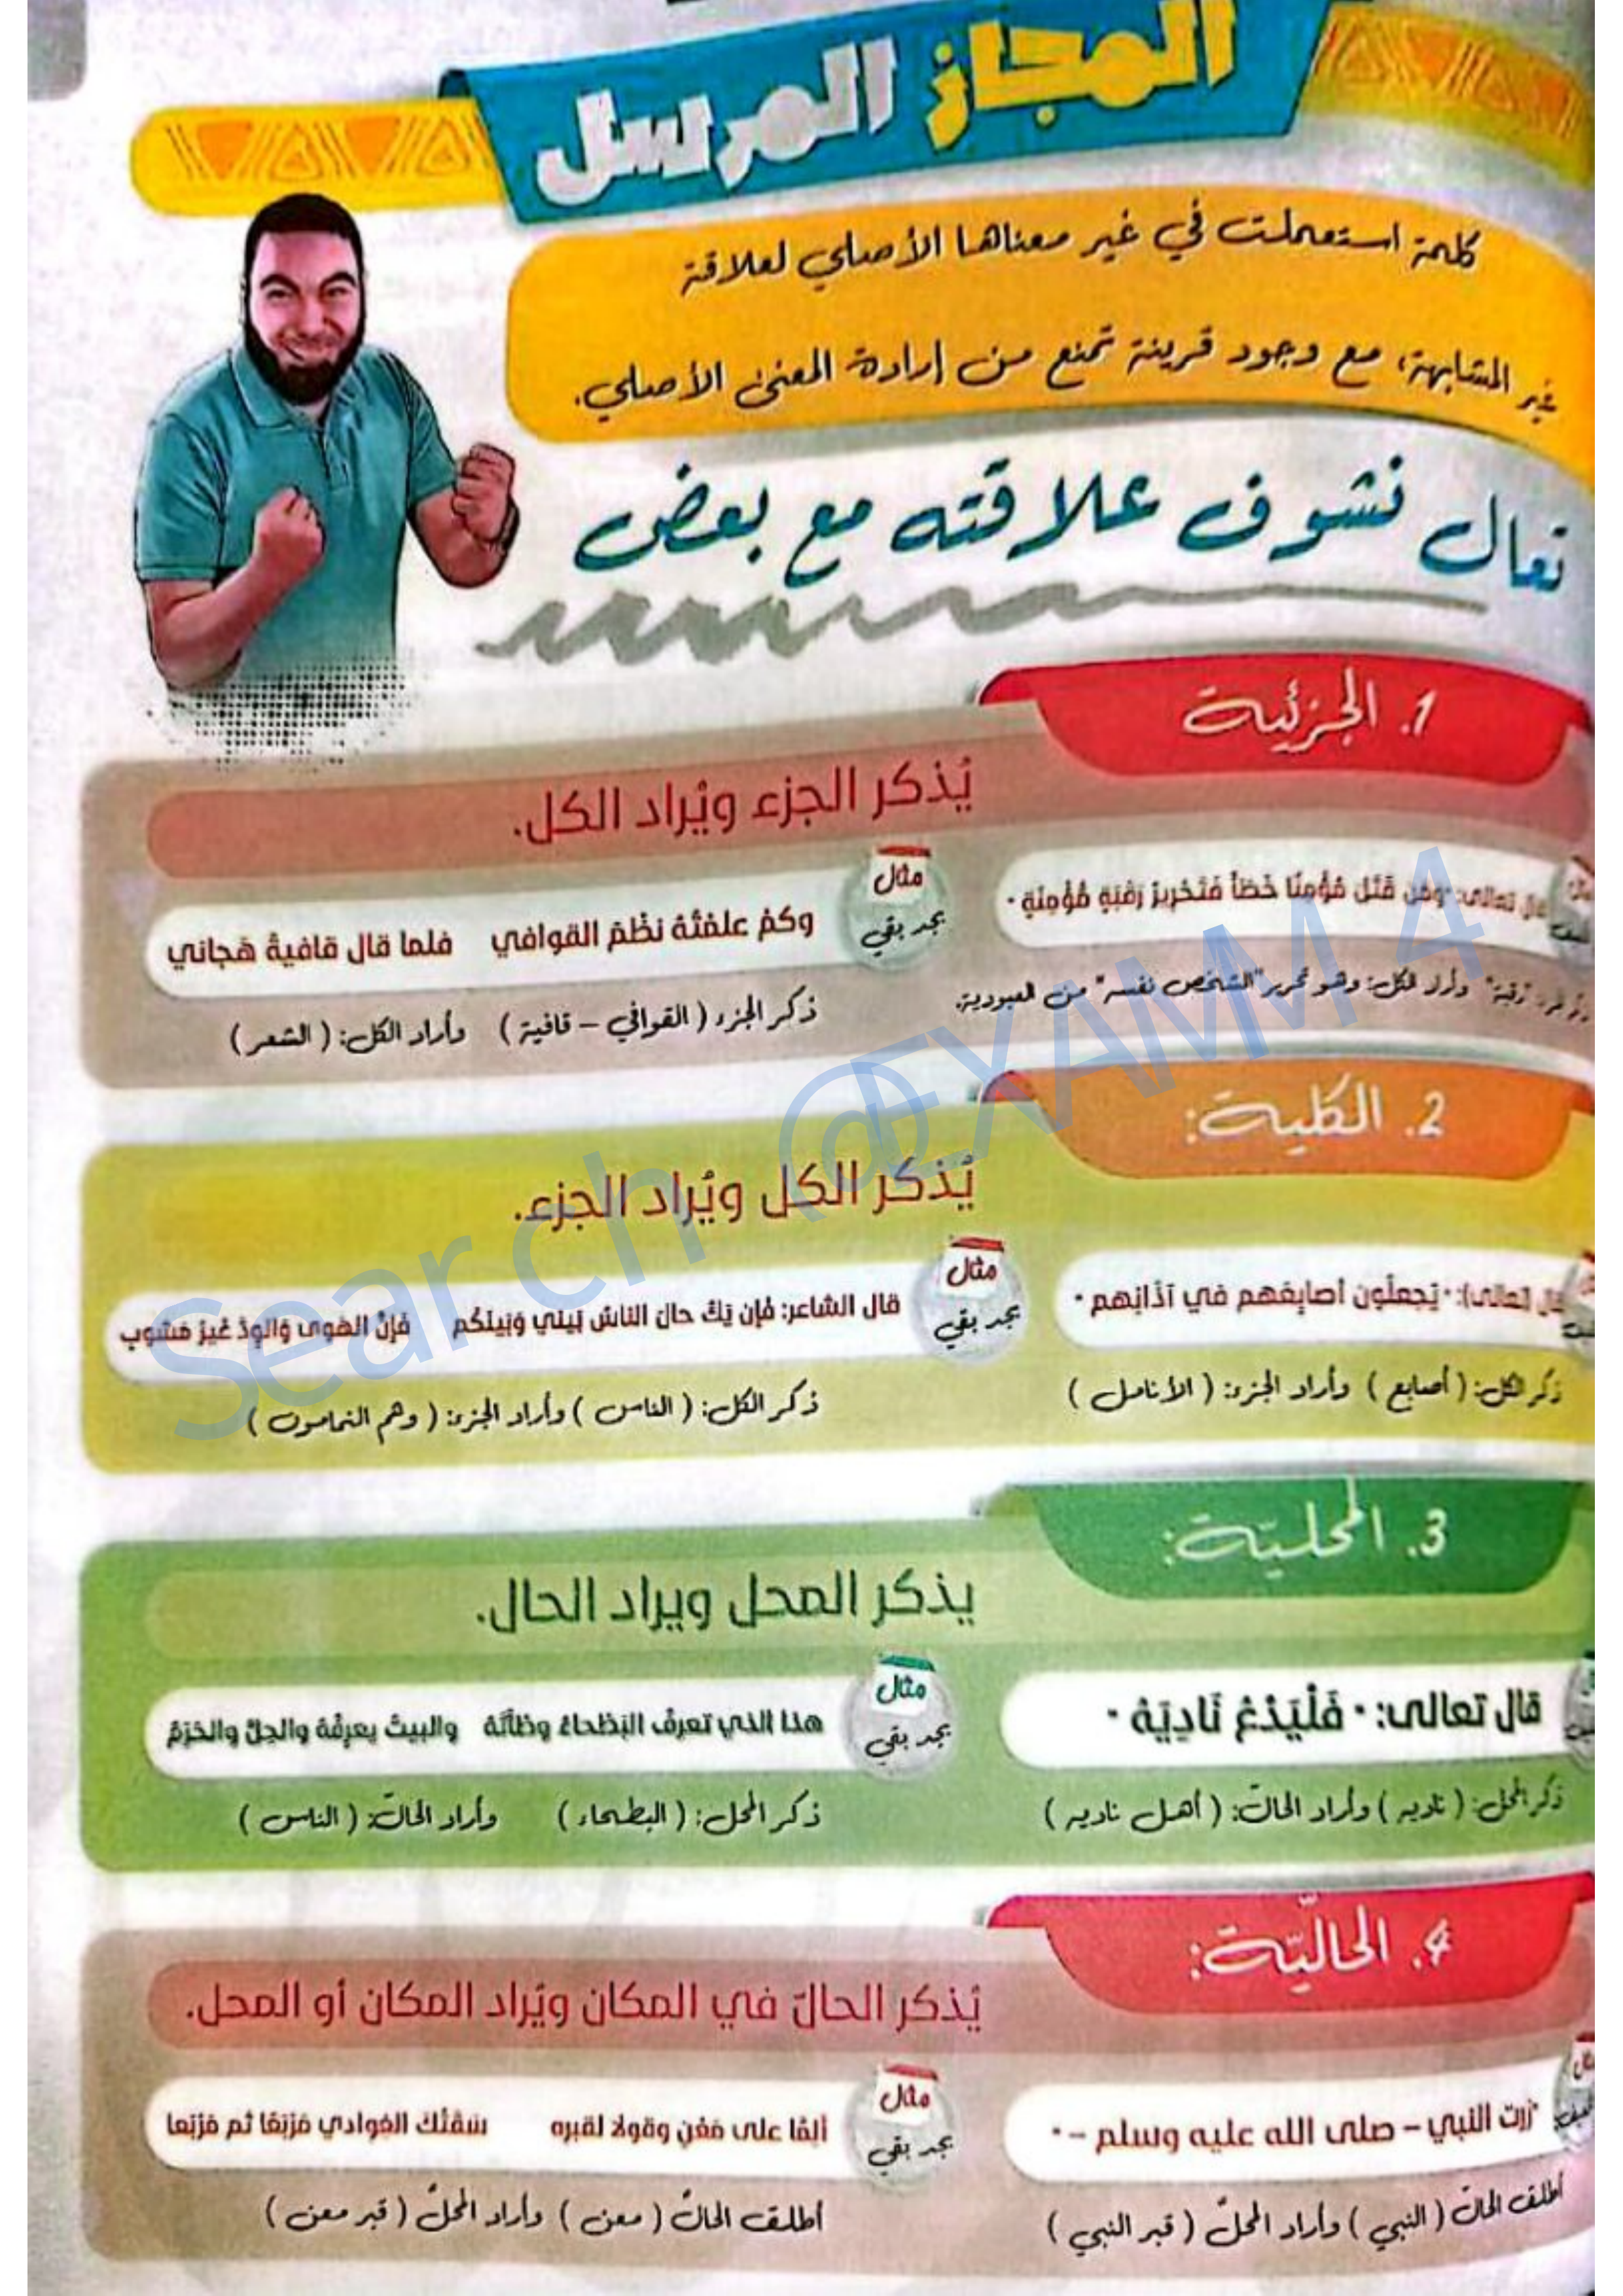 المجاز المرسل
كلمة استعملت في غير معناها الأصلي لعلاقة
غير المشابهة، مع وجود قرينة تمنع من إرادة المعنى الأصلي.
تعال نشوف علاقته مع بعض
1. الجزئية
يُذكر الجزء ويُراد الكل.
تعالى: "ومَن قَتَلَ مُؤْمِنًا خَطَأً فَتَحْرِيرُ رَقَبَةٍ مُؤْمِنَةٍ"
"رقبة" وأراد الكل: وهو تحرير "الشخص نفسه" من العبودية.
مثال
بجد بقي
وكمْ علمْتُهُ نظْمَ القوافي فلما قال قافيةً هَجاني
ذكر الجزء ( القوافي – قافية ) وأراد الكل: ( الشعر )
2. الكلية:
يُذكر الكل ويُراد الجزء.
تعالى: "يَجعلُون أصابِعَهم في آذَانِهم"
ذكر الكل: ( أصابع ) وأراد الجزء: ( الأنامل )
مثال
بجد بقي
قال الشاعر: فَإن يَكُ حالَ الناسُ بَيني وَبَينَكم فَإنَّ الهَوى وَالوِدَّ غَيرُ مَشوب
ذكر الكل: ( الناس ) وأراد الجزء: ( وهم النمامون )
3. المحليّة:
يذكر المحل ويراد الحال.
قال تعالى: "فَلْيَدْعُ نَادِيَهُ"
ذكر المحل: ( ناديه ) وأراد الحالّ: ( أهل ناديه )
مثال
بجد بقي
هذا الذي تعرفُ البَطْحاءُ وطْأَتَهُ والبيتُ يعرِفُهُ والحِلُّ والحَرَمُ
ذكر المحل: ( البطحاء ) وأراد الحالّ: ( الناس )
4. الحاليّة:
يُذكر الحالّ في المكان ويُراد المكان أو المحل.
"زرت النبي – صلى الله عليه وسلم –"
أطلق الحالّ ( النبي ) وأراد المحلّ ( قبر النبي )
مثال
بجد بقي
ألِمَّا على مَعْنٍ وقولا لقبره سَقَتْكَ الغوادي مَرْبَعًا ثم مَرْبَعا
أطلق الحالّ ( معن ) وأراد المحلّ ( قبر معن )
Search @EXAMM 4